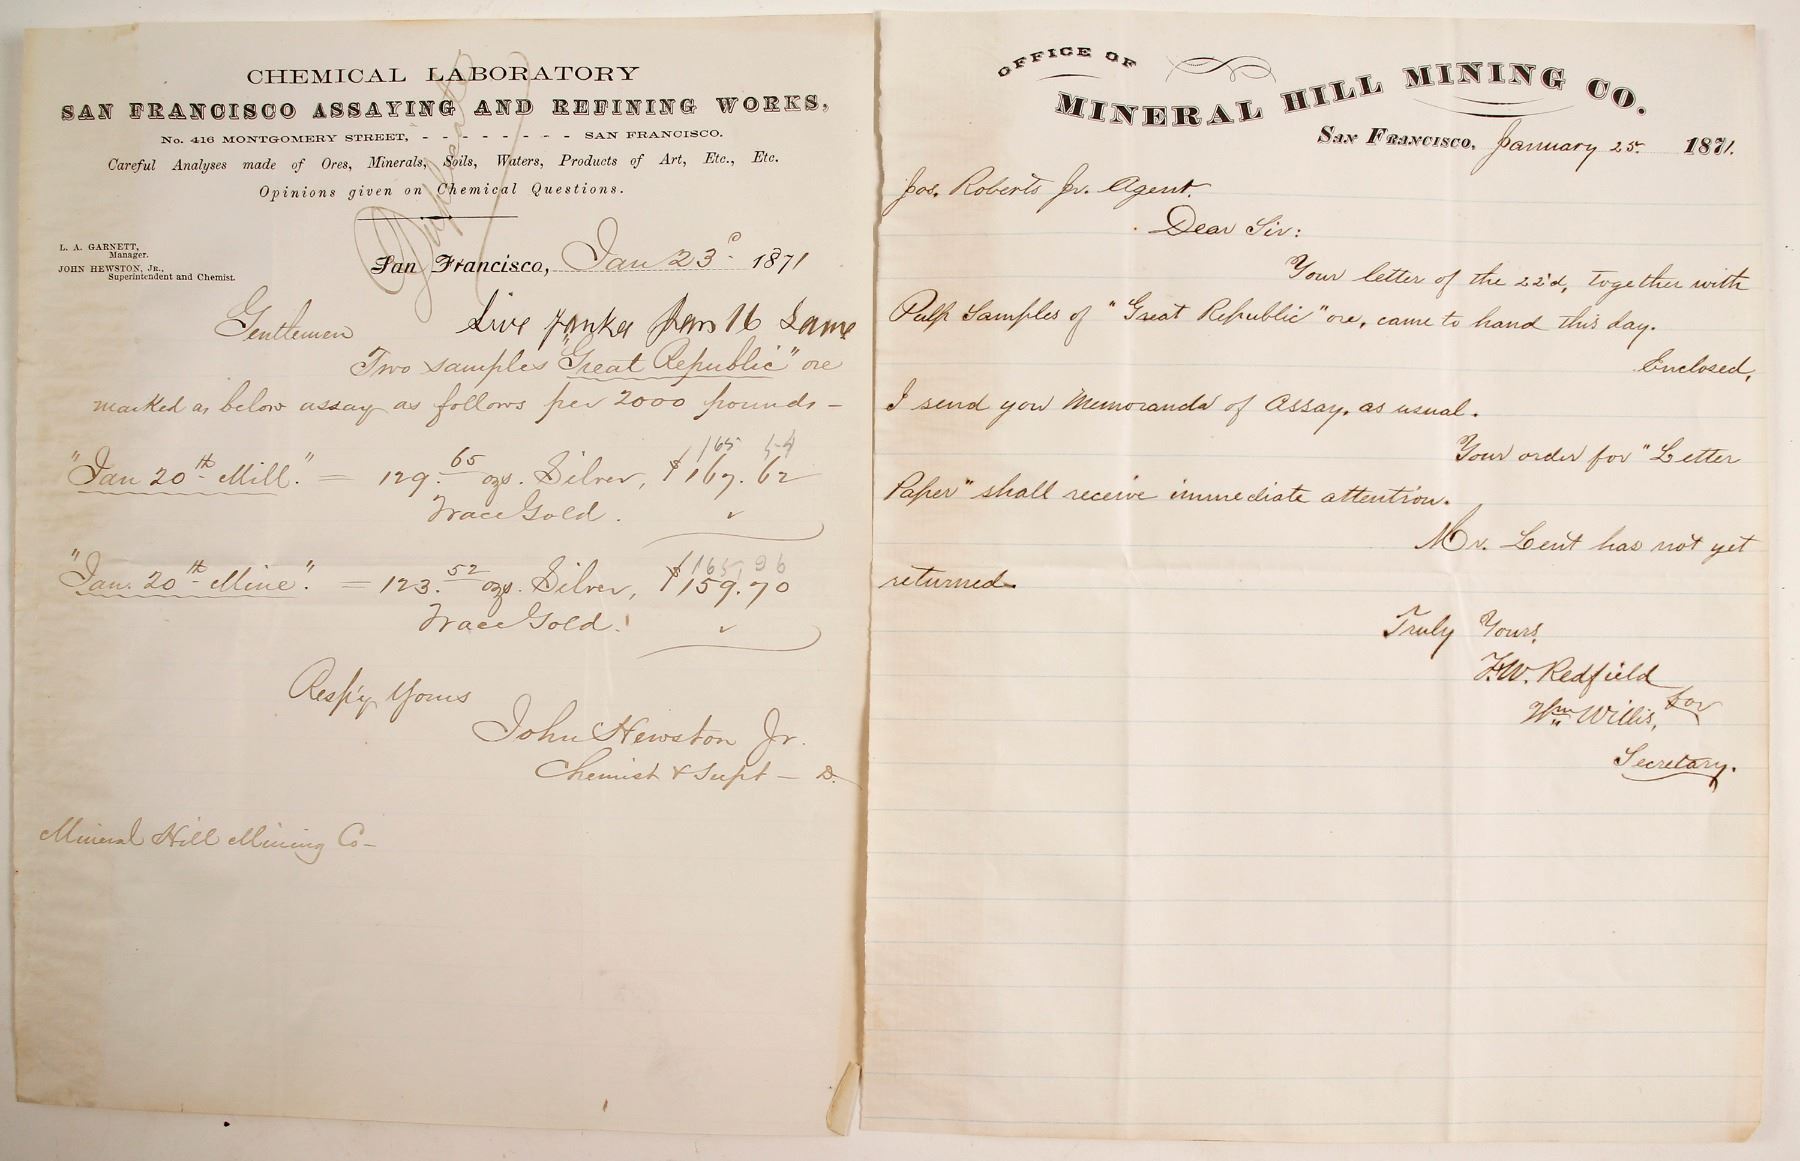 CHEMICAL LABORATORY
SAN FRANCISCO ASSAYING AND REFINING WORKS,
No. 416 MONTGOMERY STREET, - - - - - - - - SAN FRANCISCO.
Careful Analyses made of Ores, Minerals, Soils, Waters, Products of Art, Etc., Etc.
Opinions given on Chemical Questions.
Duplicate
L. A. GARNETT,
Manager.
JOHN HEWSTON, JR.,
Superintendent and Chemist.
San Francisco, Jan 23d 1871
Gentlemen
Jan 16 Same
Two samples "Great Republic" ore
marked as below assay as follows per 2000 pounds -
165 54
"Jan 20th Mill." = 129.65 ozs. Silver, $167.62
Trace Gold.
165,96
"Jan. 20th Mine". = 123.52 ozs. Silver, $159.70
Trace Gold.
Resp'y Yours
John Hewston Jr.
Chemist & Supt - D.
Mineral Hill Mining Co-
OFFICE OF
MINERAL HILL MINING CO.
SAN FRANCISCO, January 25. 1871.
Jos. Roberts Jr. Agent.
Dear Sir:
Your letter of the 22d, together with
Pulp Samples of "Great Republic" ore, came to hand this day.
Enclosed,
I send you Memoranda of Assay, as usual.
Your order for "Letter
Paper" shall receive immediate attention.
Mr. Lent has not yet
returned.
Truly Yours,
F.W. Redfield
for
Wm Willis,
Secretary.